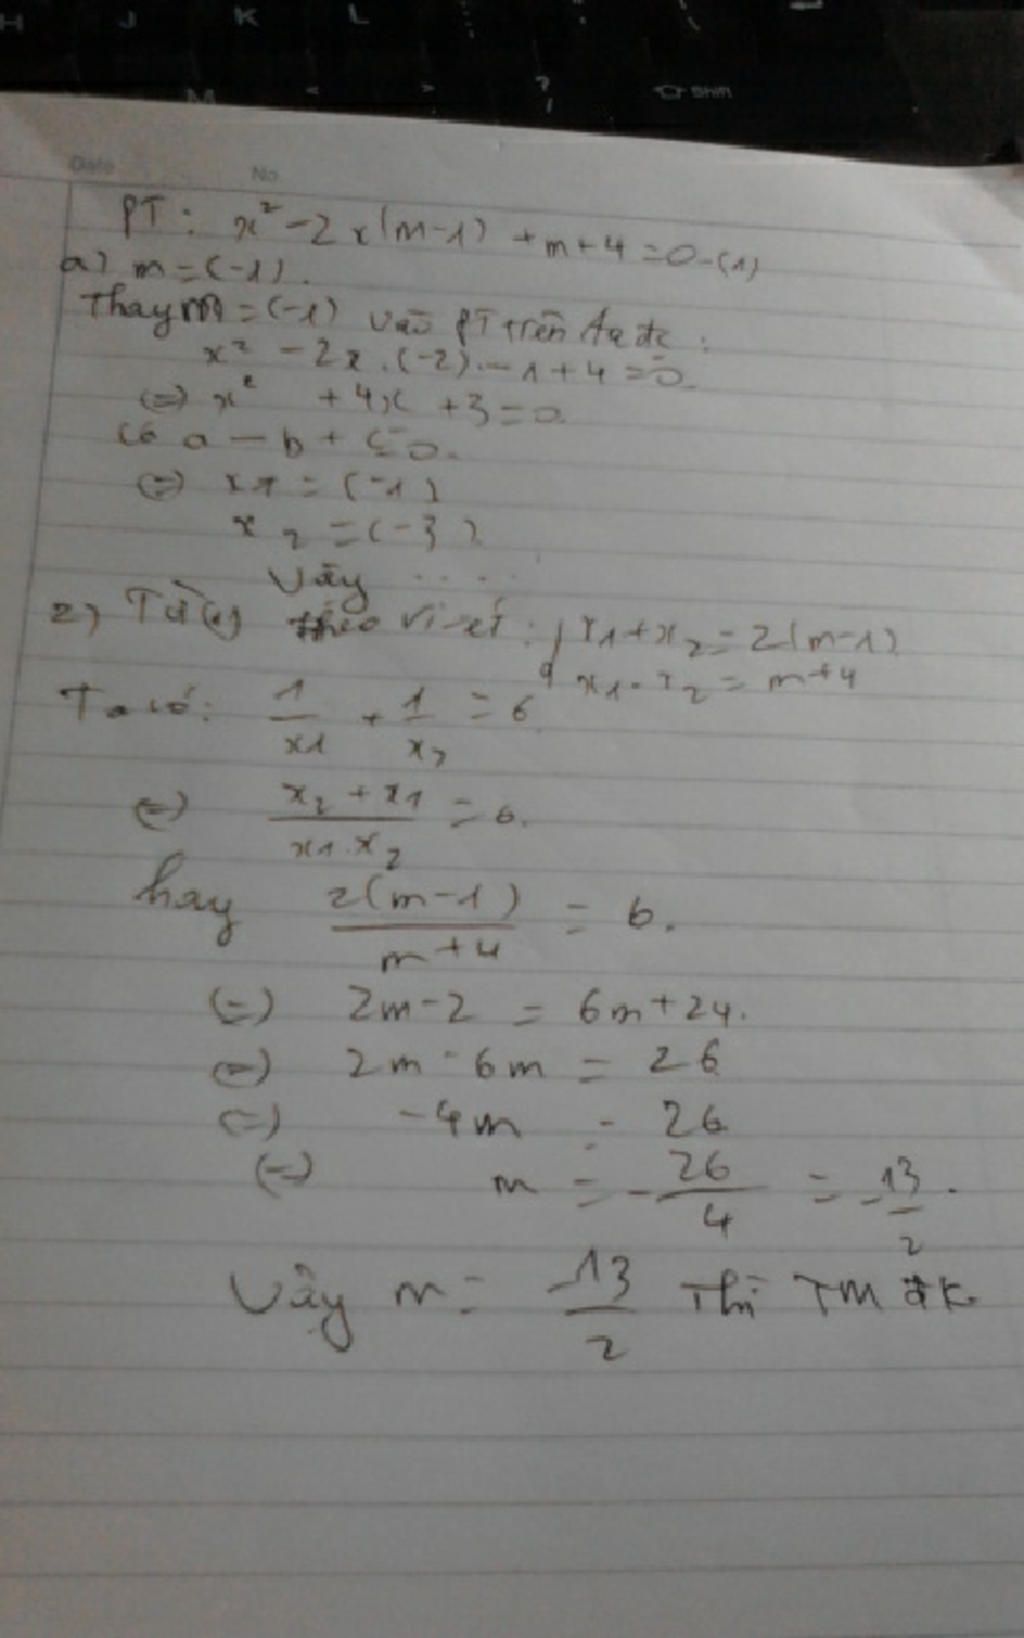 H J K L
M < > ? SHift
Date No
PT: x² - 2x(m-1) + m+4 = 0 - (1)
a) m = (-1).
Thay m = (-1) vào PT trên ta đc:
x² - 2x.(-2) - 1 + 4 = 0
(=) x² + 4x + 3 = 0.
Có a - b + c = 0.
(=) x1 = (-1)
x2 = (-3)
Vậy ....
2) Từ (1) theo vi-ét: { x1 + x2 = 2(m-1)
x1.x2 = m+4
Ta có: 1/x1 + 1/x2 = 6
(=) (x2 + x1)/(x1.x2) = 6.
hay 2(m-1)/(m+4) = 6.
(=) 2m-2 = 6m+24.
(=) 2m-6m = 26
(=) -4m = 26
(=) m = -26/4 = -13/2.
Vậy m = -13/2 Thì TM đk